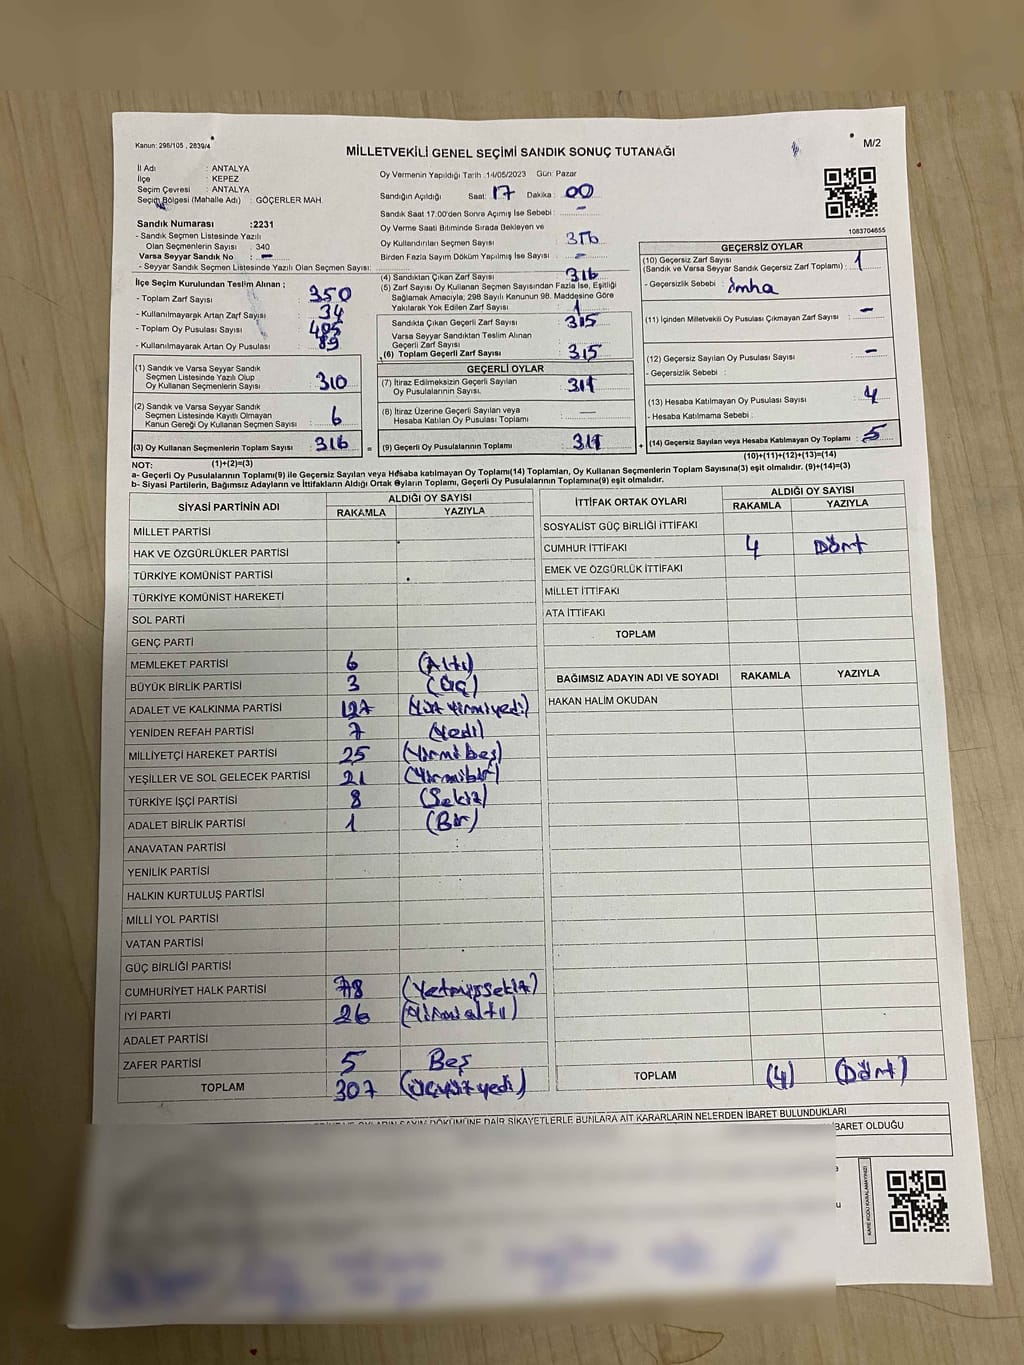 Kanun: 298/105 , 2839/4
M/2
MİLLETVEKİLİ GENEL SEÇİMİ SANDIK SONUÇ TUTANAĞI
İl Adı : ANTALYA
İlçe : KEPEZ
Seçim Çevresi : ANTALYA
Seçim Bölgesi (Mahalle Adı) : GÖÇERLER MAH.
Sandık Numarası :2231
- Sandık Seçmen Listesinde Yazılı
Olan Seçmenlerin Sayısı : 340
Varsa Seyyar Sandık No : -
- Seyyar Sandık Seçmen Listesinde Yazılı Olan Seçmen Sayısı:
İlçe Seçim Kurulundan Teslim Alınan ;
- Toplam Zarf Sayısı : 350
- Kullanılmayarak Artan Zarf Sayısı : 34
- Toplam Oy Pusulası Sayısı :
- Kullanılmayarak Artan Oy Pusulası : 89
(1) Sandık ve Varsa Seyyar Sandık
Seçmen Listesinde Yazılı Olup
Oy Kullanan Seçmenlerin Sayısı : 310
(2) Sandık ve Varsa Seyyar Sandık
Seçmen Listesinde Kayıtlı Olmayan
Kanun Gereği Oy Kullanan Seçmen Sayısı : 6
(3) Oy Kullanan Seçmenlerin Toplam Sayısı : 316 =
(1)+(2)=(3)
Oy Vermenin Yapıldığı Tarih :14/05/2023 Gün: Pazar
Sandığın Açıldığı Saat: 17 Dakika : 00
Sandık Saat 17:00'den Sonra Açılmış İse Sebebi : -
Oy Verme Saati Bitiminde Sırada Bekleyen ve
Oy Kullandırılan Seçmen Sayısı :
Birden Fazla Sayım Döküm Yapılmış İse Sayısı : -
(4) Sandıktan Çıkan Zarf Sayısı : 316
(5) Zarf Sayısı Oy Kullanan Seçmen Sayısından Fazla İse, Eşitliği
Sağlamak Amacıyla; 298 Sayılı Kanunun 98. Maddesine Göre
Yakılarak Yok Edilen Zarf Sayısı : 1
Sandıkta Çıkan Geçerli Zarf Sayısı : 315
Varsa Seyyar Sandıktan Teslim Alınan
Geçerli Zarf Sayısı :
(6) Toplam Geçerli Zarf Sayısı : 315
GEÇERLİ OYLAR
(7) İtiraz Edilmeksizin Geçerli Sayılan
Oy Pusulalarının Sayısı. : 311
(8) İtiraz Üzerine Geçerli Sayılan veya
Hesaba Katılan Oy Pusulası Toplamı : -
(9) Geçerli Oy Pusulalarının Toplamı : 311 +
1083704655
GEÇERSİZ OYLAR
(10) Geçersiz Zarf Sayısı
(Sandık ve Varsa Seyyar Sandık Geçersiz Zarf Toplamı) : 1
- Geçersizlik Sebebi : imha
(11) İçinden Milletvekili Oy Pusulası Çıkmayan Zarf Sayısı : -
(12) Geçersiz Sayılan Oy Pusulası Sayısı : -
- Geçersizlik Sebebi :
(13) Hesaba Katılmayan Oy Pusulası Sayısı : 4
- Hesaba Katılmama Sebebi :
(14) Geçersiz Sayılan veya Hesaba Katılmayan Oy Toplamı : 5
(10)+(11)+(12)+(13)=(14)
NOT:
a- Geçerli Oy Pusulalarının Toplamı(9) ile Geçersiz Sayılan veya Hesaba katılmayan Oy Toplamı(14) Toplamları, Oy Kullanan Seçmenlerin Toplam Sayısına(3) eşit olmalıdır. (9)+(14)=(3)
b- Siyasi Partilerin, Bağımsız Adayların ve İttifakların Aldığı Ortak Oyların Toplamı, Geçerli Oy Pusulalarının Toplamına(9) eşit olmalıdır.
SİYASİ PARTİNİN ADI ALDIĞI OY SAYISI
RAKAMLA YAZIYLA
MİLLET PARTİSİ
HAK VE ÖZGÜRLÜKLER PARTİSİ
TÜRKİYE KOMÜNİST PARTİSİ
TÜRKİYE KOMÜNİST HAREKETİ
SOL PARTİ
GENÇ PARTİ
MEMLEKET PARTİSİ 6 (Altı)
BÜYÜK BİRLİK PARTİSİ 3 (Üç)
ADALET VE KALKINMA PARTİSİ 127 (Yüz yirmiyedi)
YENİDEN REFAH PARTİSİ 7 (Yedi)
MİLLİYETÇİ HAREKET PARTİSİ 25 (Yirmi beş)
YEŞİLLER VE SOL GELECEK PARTİSİ 21 (Yirmibir)
TÜRKİYE İŞÇİ PARTİSİ 8 (Sekiz)
ADALET BİRLİK PARTİSİ 1 (Bir)
ANAVATAN PARTİSİ
YENİLİK PARTİSİ
HALKIN KURTULUŞ PARTİSİ
MİLLİ YOL PARTİSİ
VATAN PARTİSİ
GÜÇ BİRLİĞİ PARTİSİ
CUMHURİYET HALK PARTİSİ 78 (Yetmişsekiz)
İYİ PARTİ 26 (Yirmi altı)
ADALET PARTİSİ
ZAFER PARTİSİ 5 Beş
TOPLAM 307 (Üçyüz yedi)
İTTİFAK ORTAK OYLARI ALDIĞI OY SAYISI
RAKAMLA YAZIYLA
SOSYALİST GÜÇ BİRLİĞİ İTTİFAKI
CUMHUR İTTİFAKI 4 Dört
EMEK VE ÖZGÜRLÜK İTTİFAKI
MİLLET İTTİFAKI
ATA İTTİFAKI
TOPLAM
BAĞIMSIZ ADAYIN ADI VE SOYADI RAKAMLA YAZIYLA
HAKAN HALİM OKUDAN
TOPLAM (4) (Dört)
OYLARIN SAYIM DÖKÜMÜNE DAİR ŞİKAYETLERLE BUNLARA AİT KARARLARIN NELERDEN İBARET BULUNDUKLARI
BARET OLDUĞU
KARE KODU KARALAMAYINIZ!